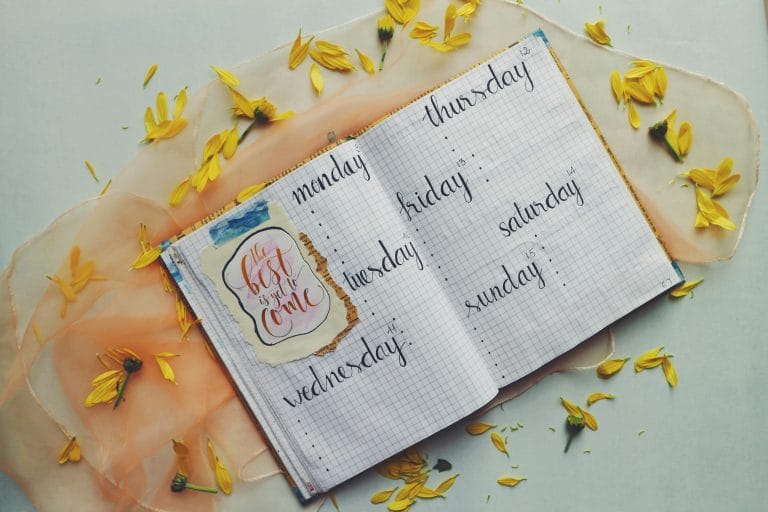 The
best
is yet to
come
monday
tuesday
wednesday 11
thursday 12
friday 13
saturday 14
sunday 15